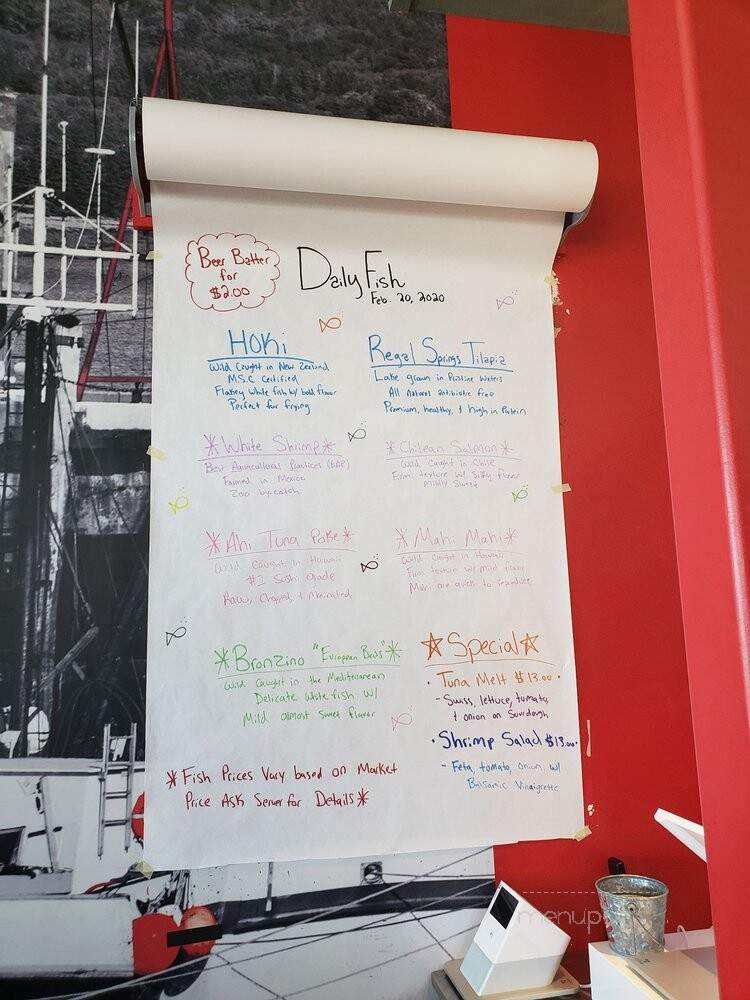 Beer Batter
for
$2.00
Daily Fish
Feb. 20, 2020
HOKi
Wild Caught in New Zealand
M.S.C Certified
Flakey white fish w/ bold flavor
Perfect for frying
Regal Springs Tilapia
Lake grown in Pristine Waters
All Natural antibiotic free
Premium, healthy, + high in Protein
*White Shrimp*
Best Aquacultural Practices (BAP)
Farmed in Mexico
Zero by-catch
*Chilean Salmon*
Wild Caught in Chile
Firm texture w/ Silky flavor
mildly Sweet
*Ahi Tuna Poke*
Wild Caught in Hawaii
#1 Sushi grade
Raw, Chopped, + marinated
*Mahi Mahi*
Wild Caught in Hawaii
Firm texture w/ mild flavor
Mahi are quick to reproduce
*Bronzino "European Bass"*
Wild Caught in the Mediterranean
Delicate white fish w/
Mild almost sweet flavor
☆Special☆
• Tuna Melt $13.00 •
- Swiss, lettuce, tomato,
+ onion on Sourdough
• Shrimp Salad $13.00 •
- Feta, tomato, onion, w/
Balsamic Vinaigrette
*Fish Prices Vary based on Market
Price Ask Server for Details*
menup